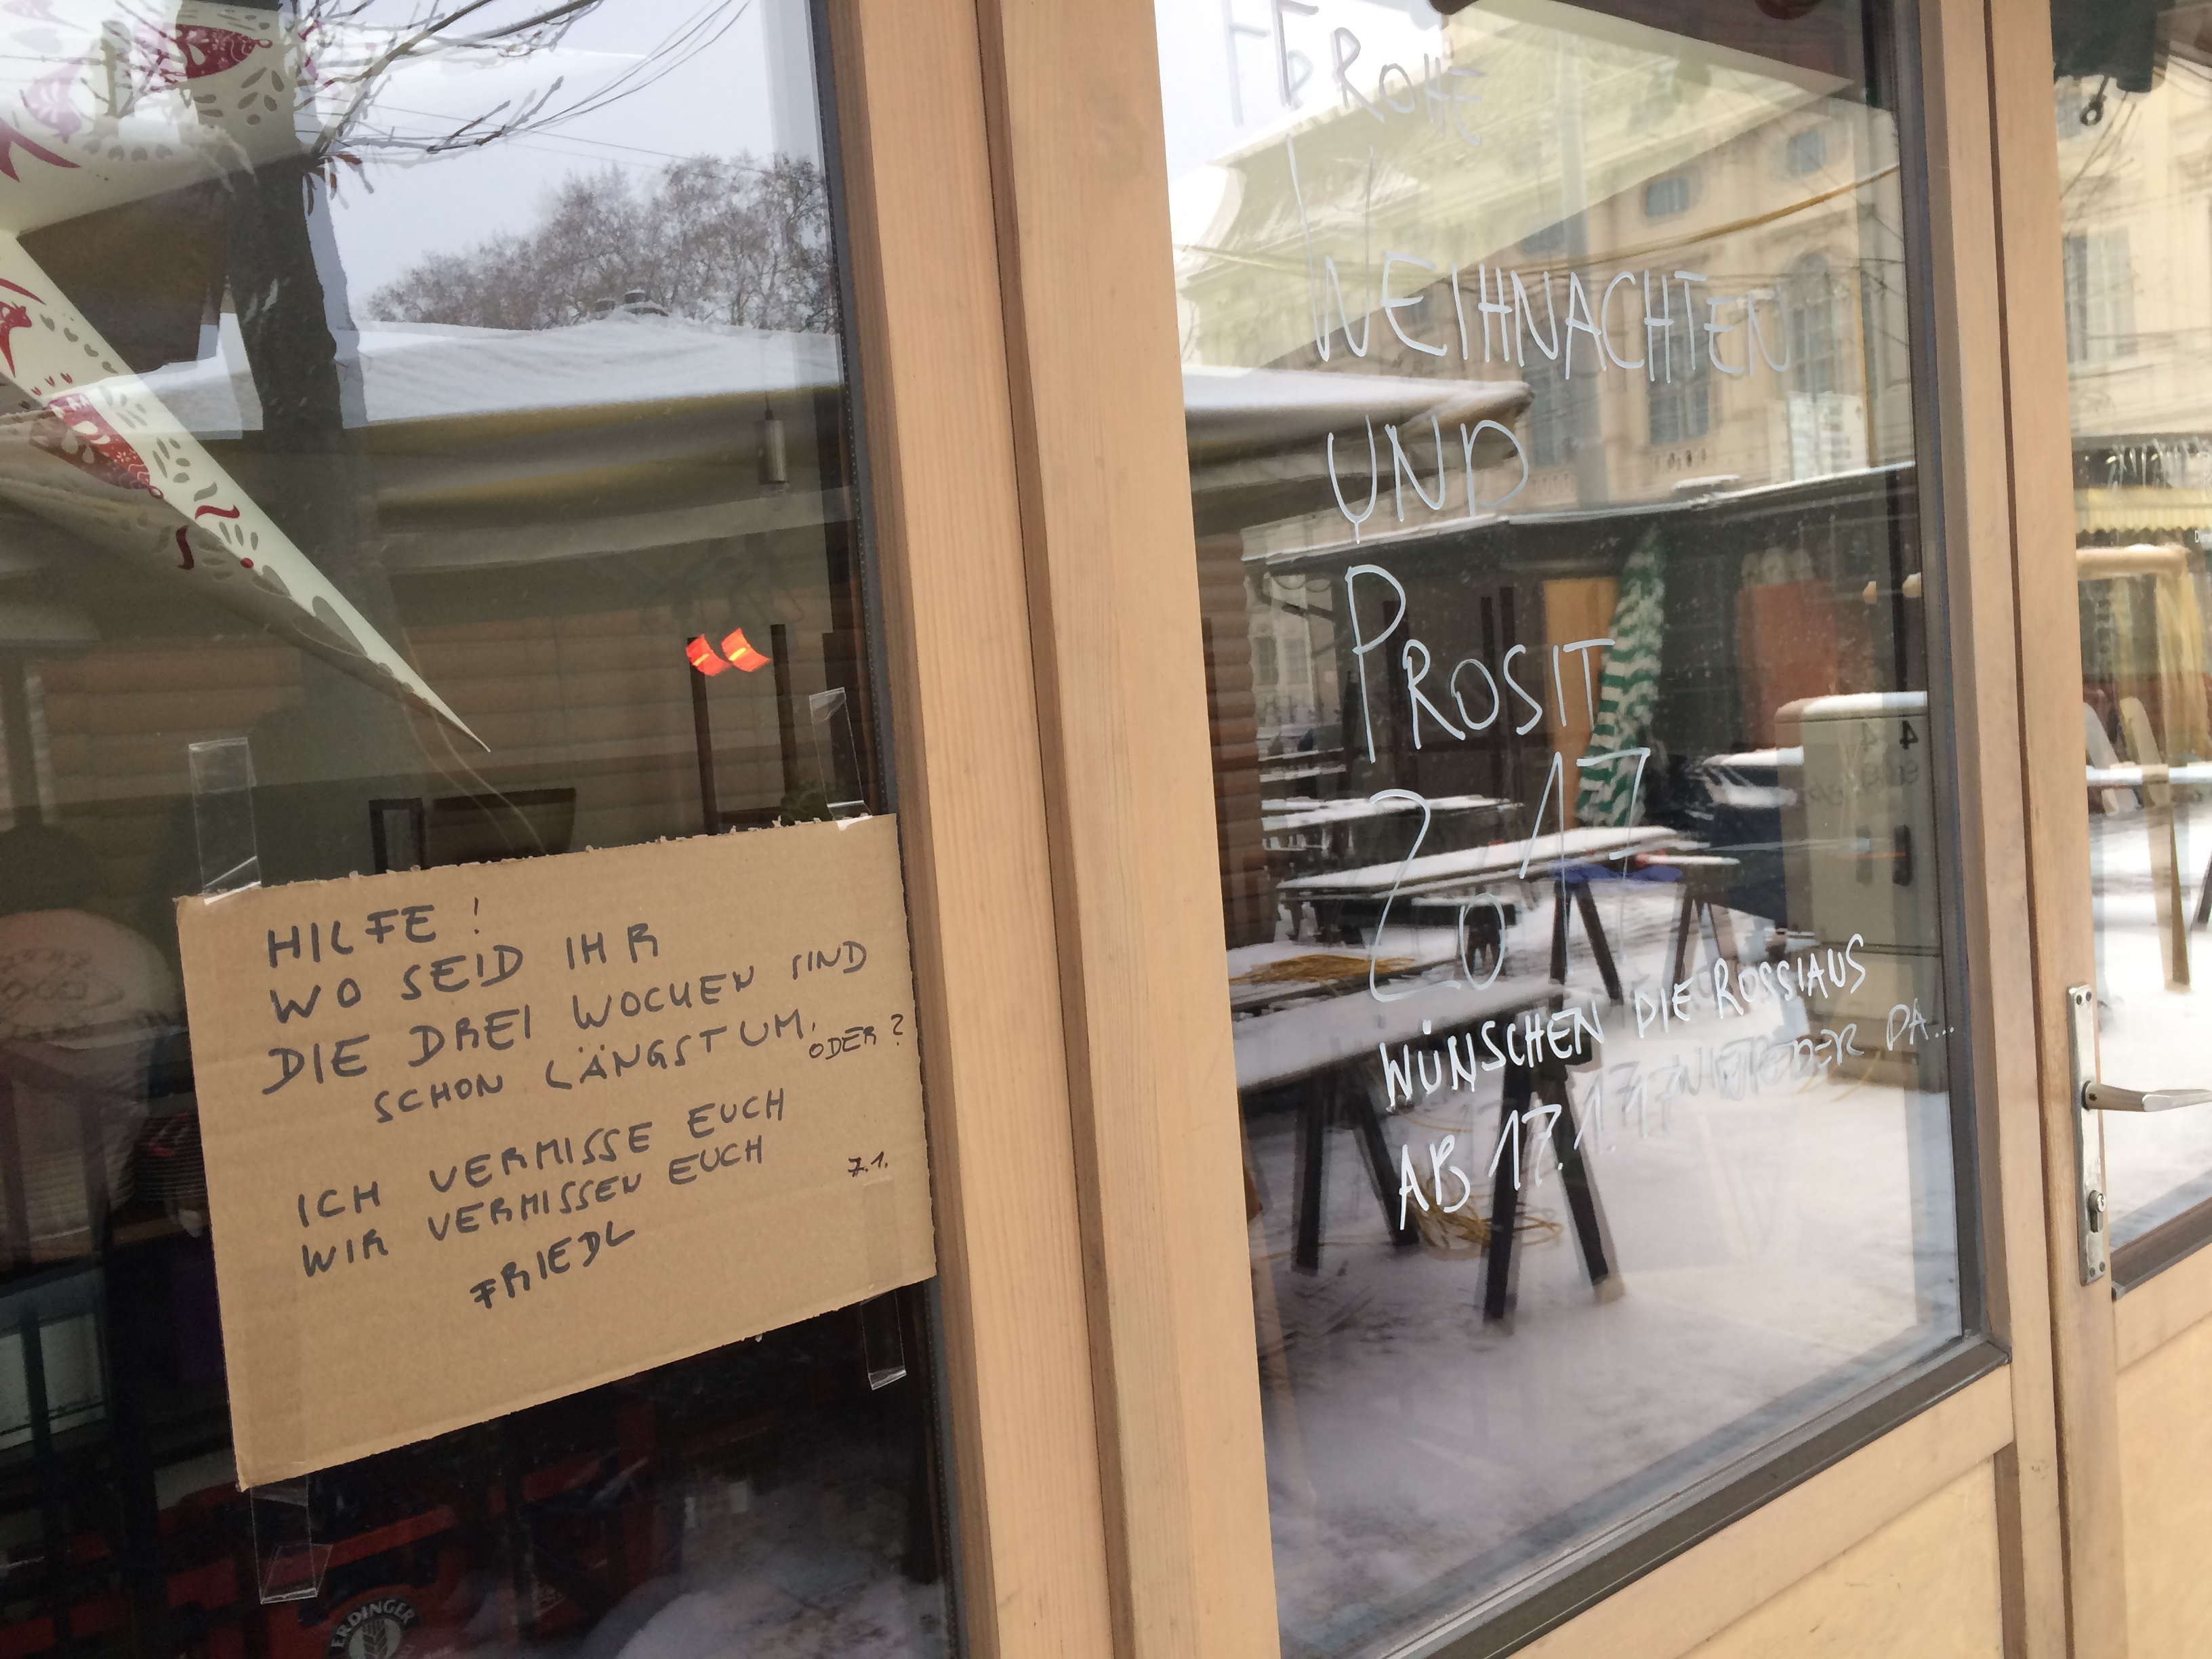 HILFE!
WO SEID IHR
DIE DREI WOCHEN SIND
SCHON LÄNGST UM,
ODER?
ICH VERMISSE EUCH
WIR VERMISSEN EUCH
7.1.
FRIEDL
ERDINGER
FROHE
WEIHNACHTEN
UND
PROSIT
2017
WÜNSCHEN DIE ROSSIAUS
AB 17.1.17 WIEDER DA...
4